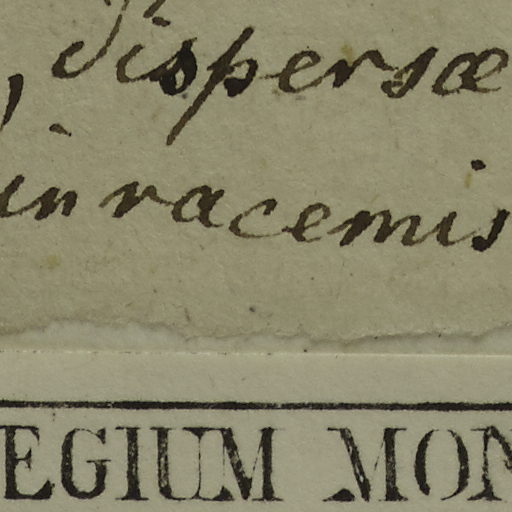 , dispersæ
in racemis
EGIUM MON